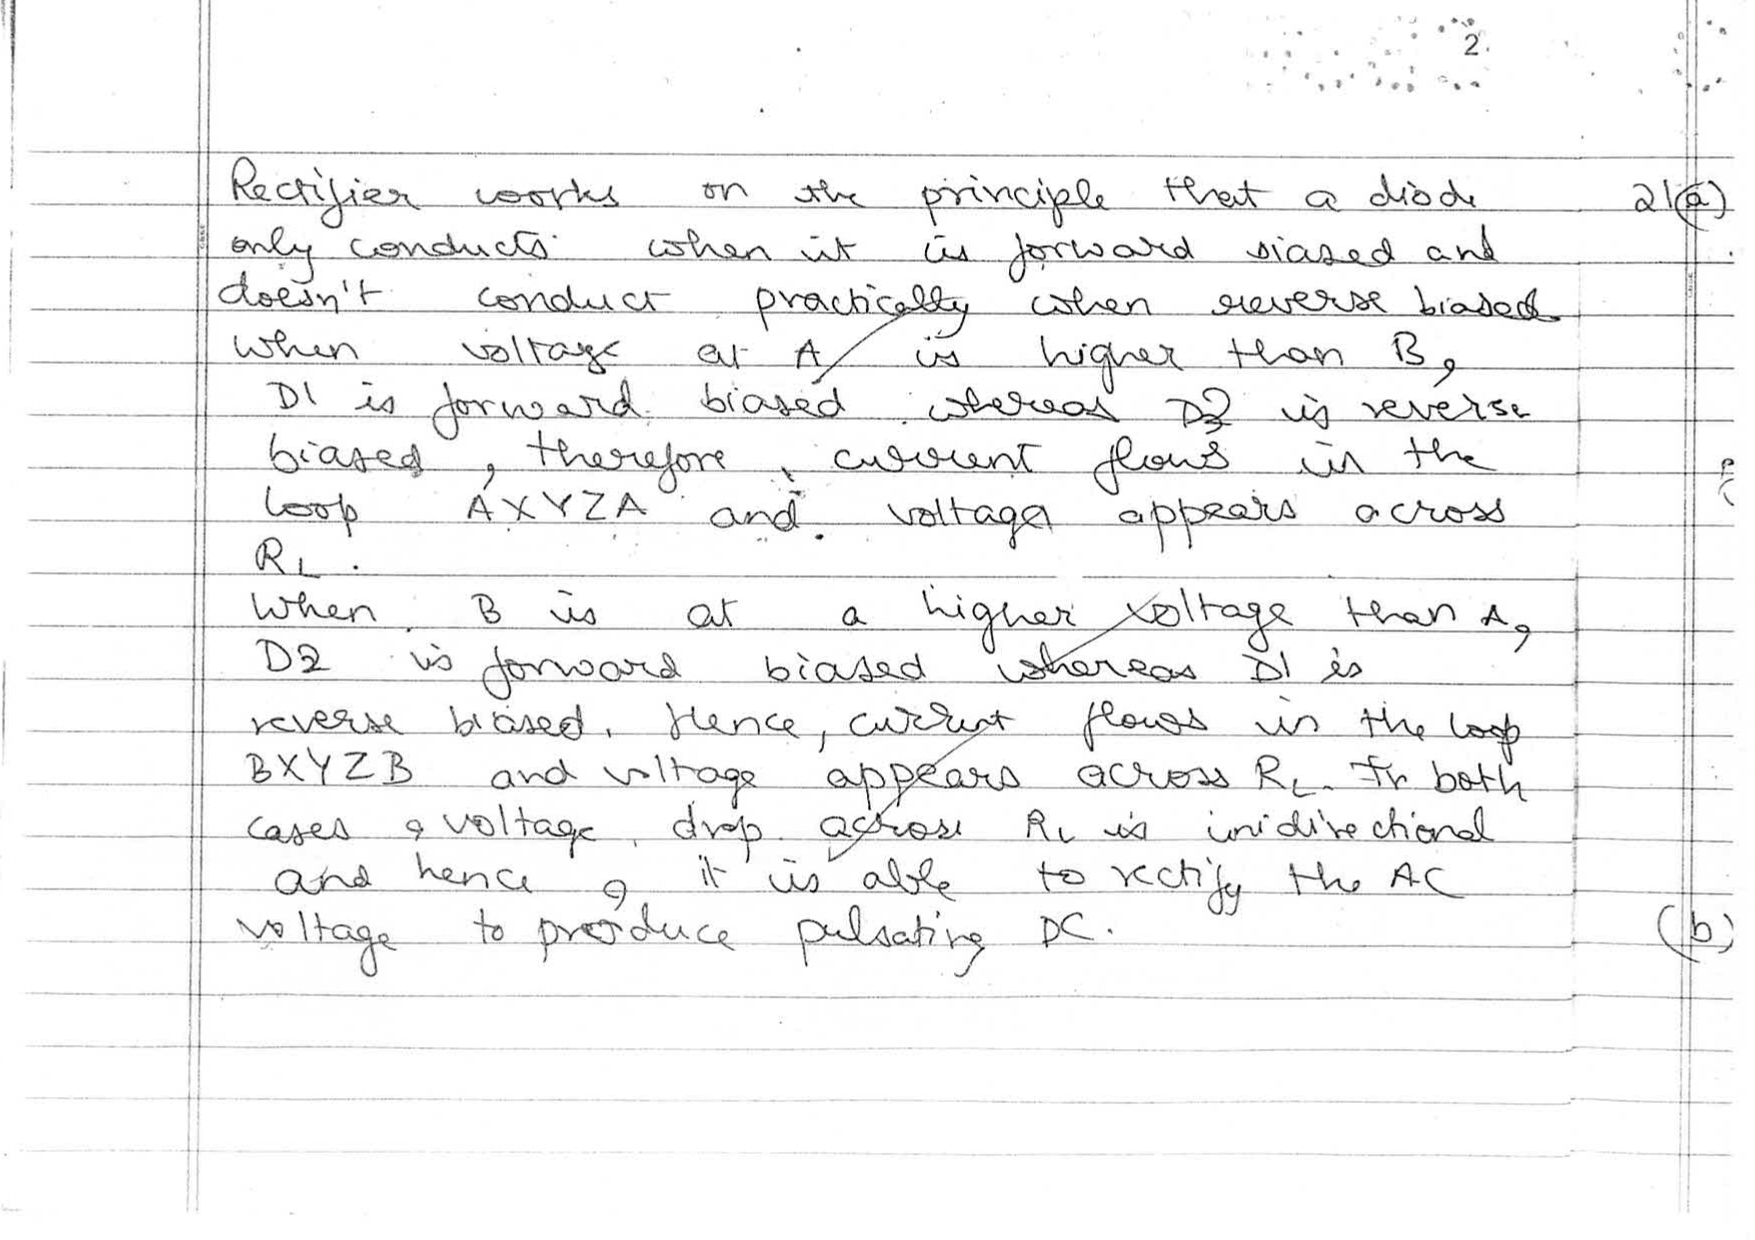 2.
Rectifier works on the principle that a diode 21(a)
only conducts when it is forward biased and
doesn't conduct practically when reverse biased
When voltage at A is higher than B,
D1 is forward biased whereas D2 is reverse
biased, therefore, current flows in the
loop AXYZA and voltage appears across
RL.
When B is at a higher voltage than A,
D2 is forward biased whereas D1 is
reverse biased. Hence, current flows in the loop
BXYZB and voltage appears across RL. In both
cases, voltage drop across RL is unidirectional
and hence, it is able to rectify the AC
voltage to produce pulsating DC. (b)